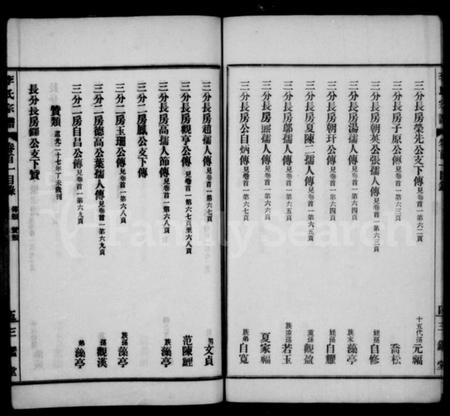 三分長房榮先公支下傳 見卷首一第六二頁 十五代孫元福
三分長房子原公傳 見卷首一第六三頁 喬松
三分長房朝英公張孺人傳 見卷首一第六三頁 自修
三分長房湯孺人傳 見卷首一第六四頁 藻亭
三分長房朝玕公傳 見卷首一第六四頁 自耀
三分二房夏陳二孺人傳 見卷首一第六五頁 觀盤
三分長房鄔孺人傳 見卷首一第六五頁 若玉
三分長房 孺人傳 見卷首一第六六頁 夏家福
三分長房公自炳傳 見卷首一第六七頁 族弟自寬
三分長房趙孺人傳 見卷首一第六七頁 文貞
三分長房觀亨公傳 見卷首一第六七頁至六八頁 范陳鯉
三分長房高孺人節傳 見卷首一第六八頁 藻亭
三分二房鳳公支下傳
三分二房玉珊公傳 見卷首一第六八頁 族孫藻亭
三分二房德高公葉孺人傳 見卷首一第六九頁 觀漢
三分二房自昌公傳 見卷首一第六九頁 弟藻亭
贊類 道光二十七年丁未鐫刊
長分長房 公支下贊
李氏宗譜 卷首一目錄 傳類 贊類 三鑑堂
FamilySearch